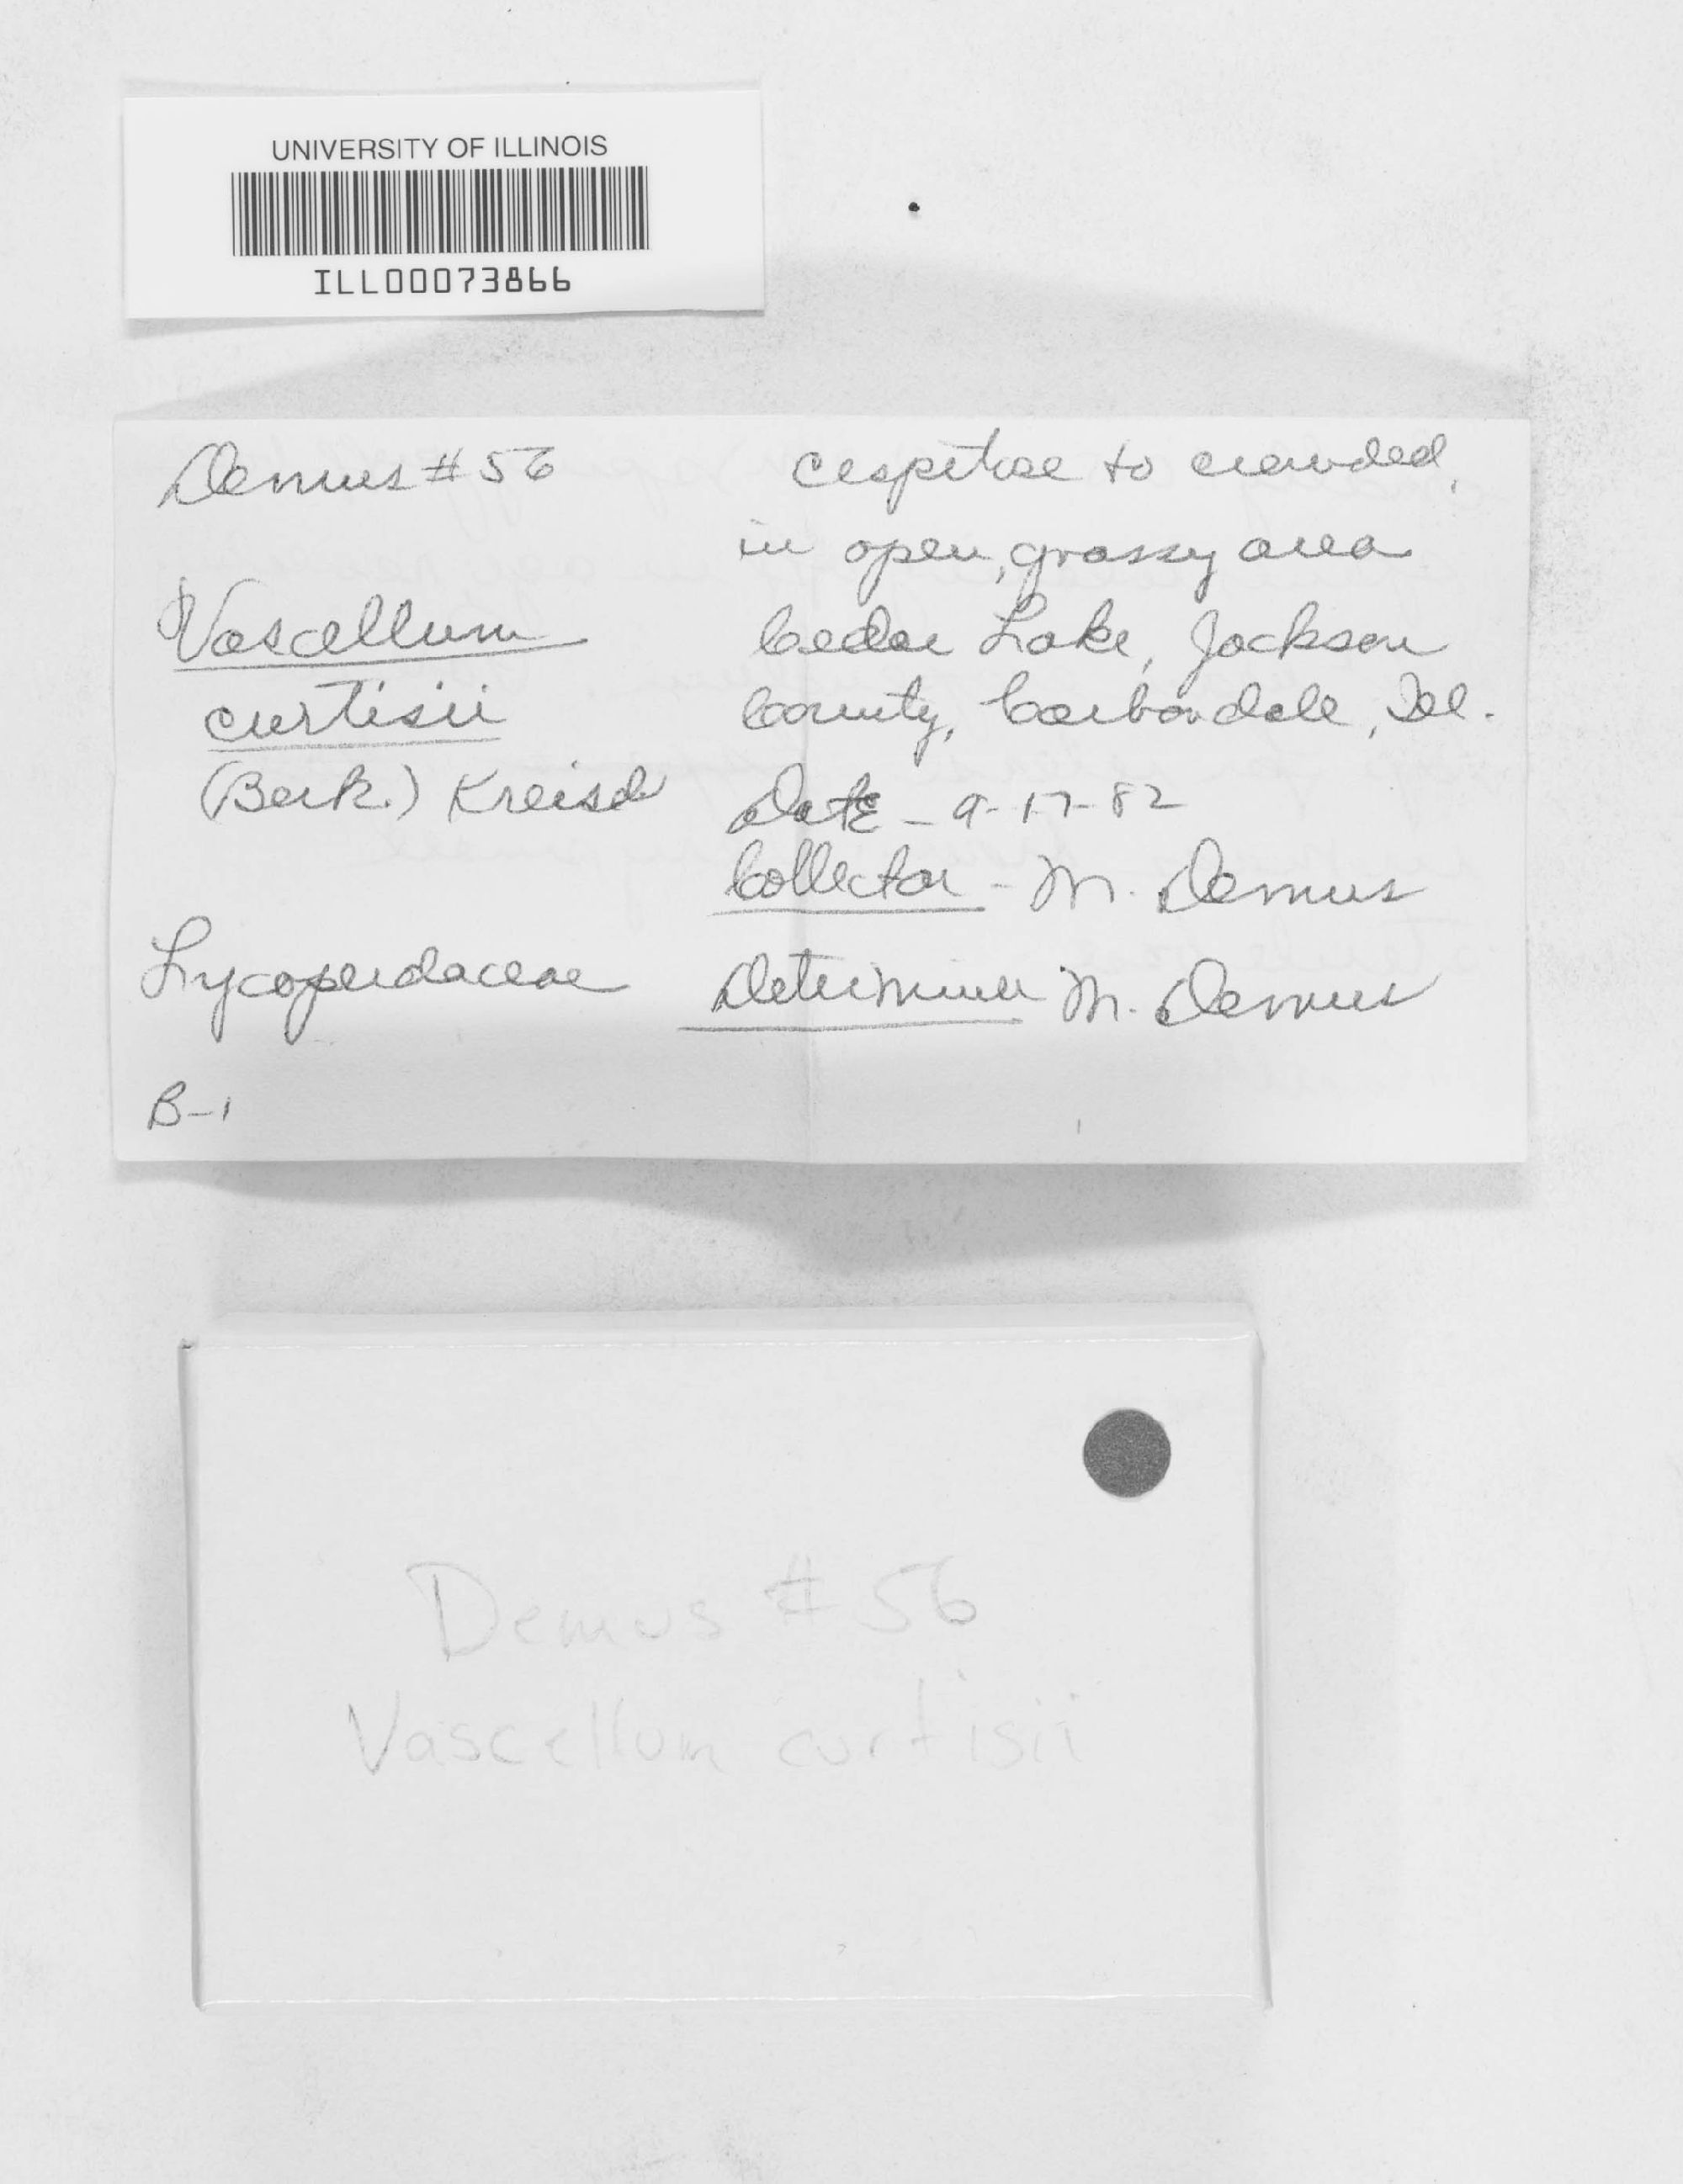 UNIVERSITY OF ILLINOIS
ILL00073866
Demus #56
Vascellum
curtisii
(Berk.) Kreisel
Lycoperdaceae
B-1
cespitose to crowded,
in open, grassy area
Cedar Lake, Jackson
County, Carbondale, Ill.
Date - 9-17-82
Collector - M. Demus
Determiner M. Demus
Demus #56
Vascellum curtisii